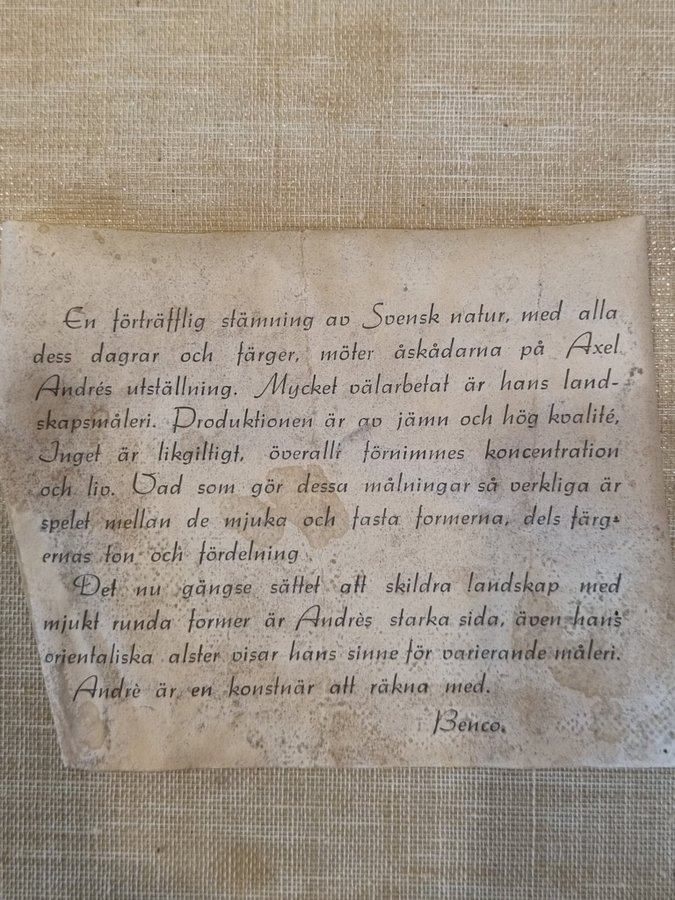 En förträfflig stämning av Svensk natur, med alla
dess dagrar och färger, möter åskådarna på Axel
Andrés utställning. Mycket välarbetat är hans land-
skapsmåleri. Produktionen är av jämn och hög kvalité,
Inget är likgiltigt, överallt förnimmes koncentration
och liv. Vad som gör dessa målningar så verkliga är
spelet mellan de mjuka och fasta formerna, dels färg-
ernas ton och fördelning.
Det nu gängse sättet att skildra landskap med
mjukt runda former är Andrès starka sida, även hans
orientaliska alster visar hans sinne för varierande måleri.
Andrè är en konstnär att räkna med.
Benco.